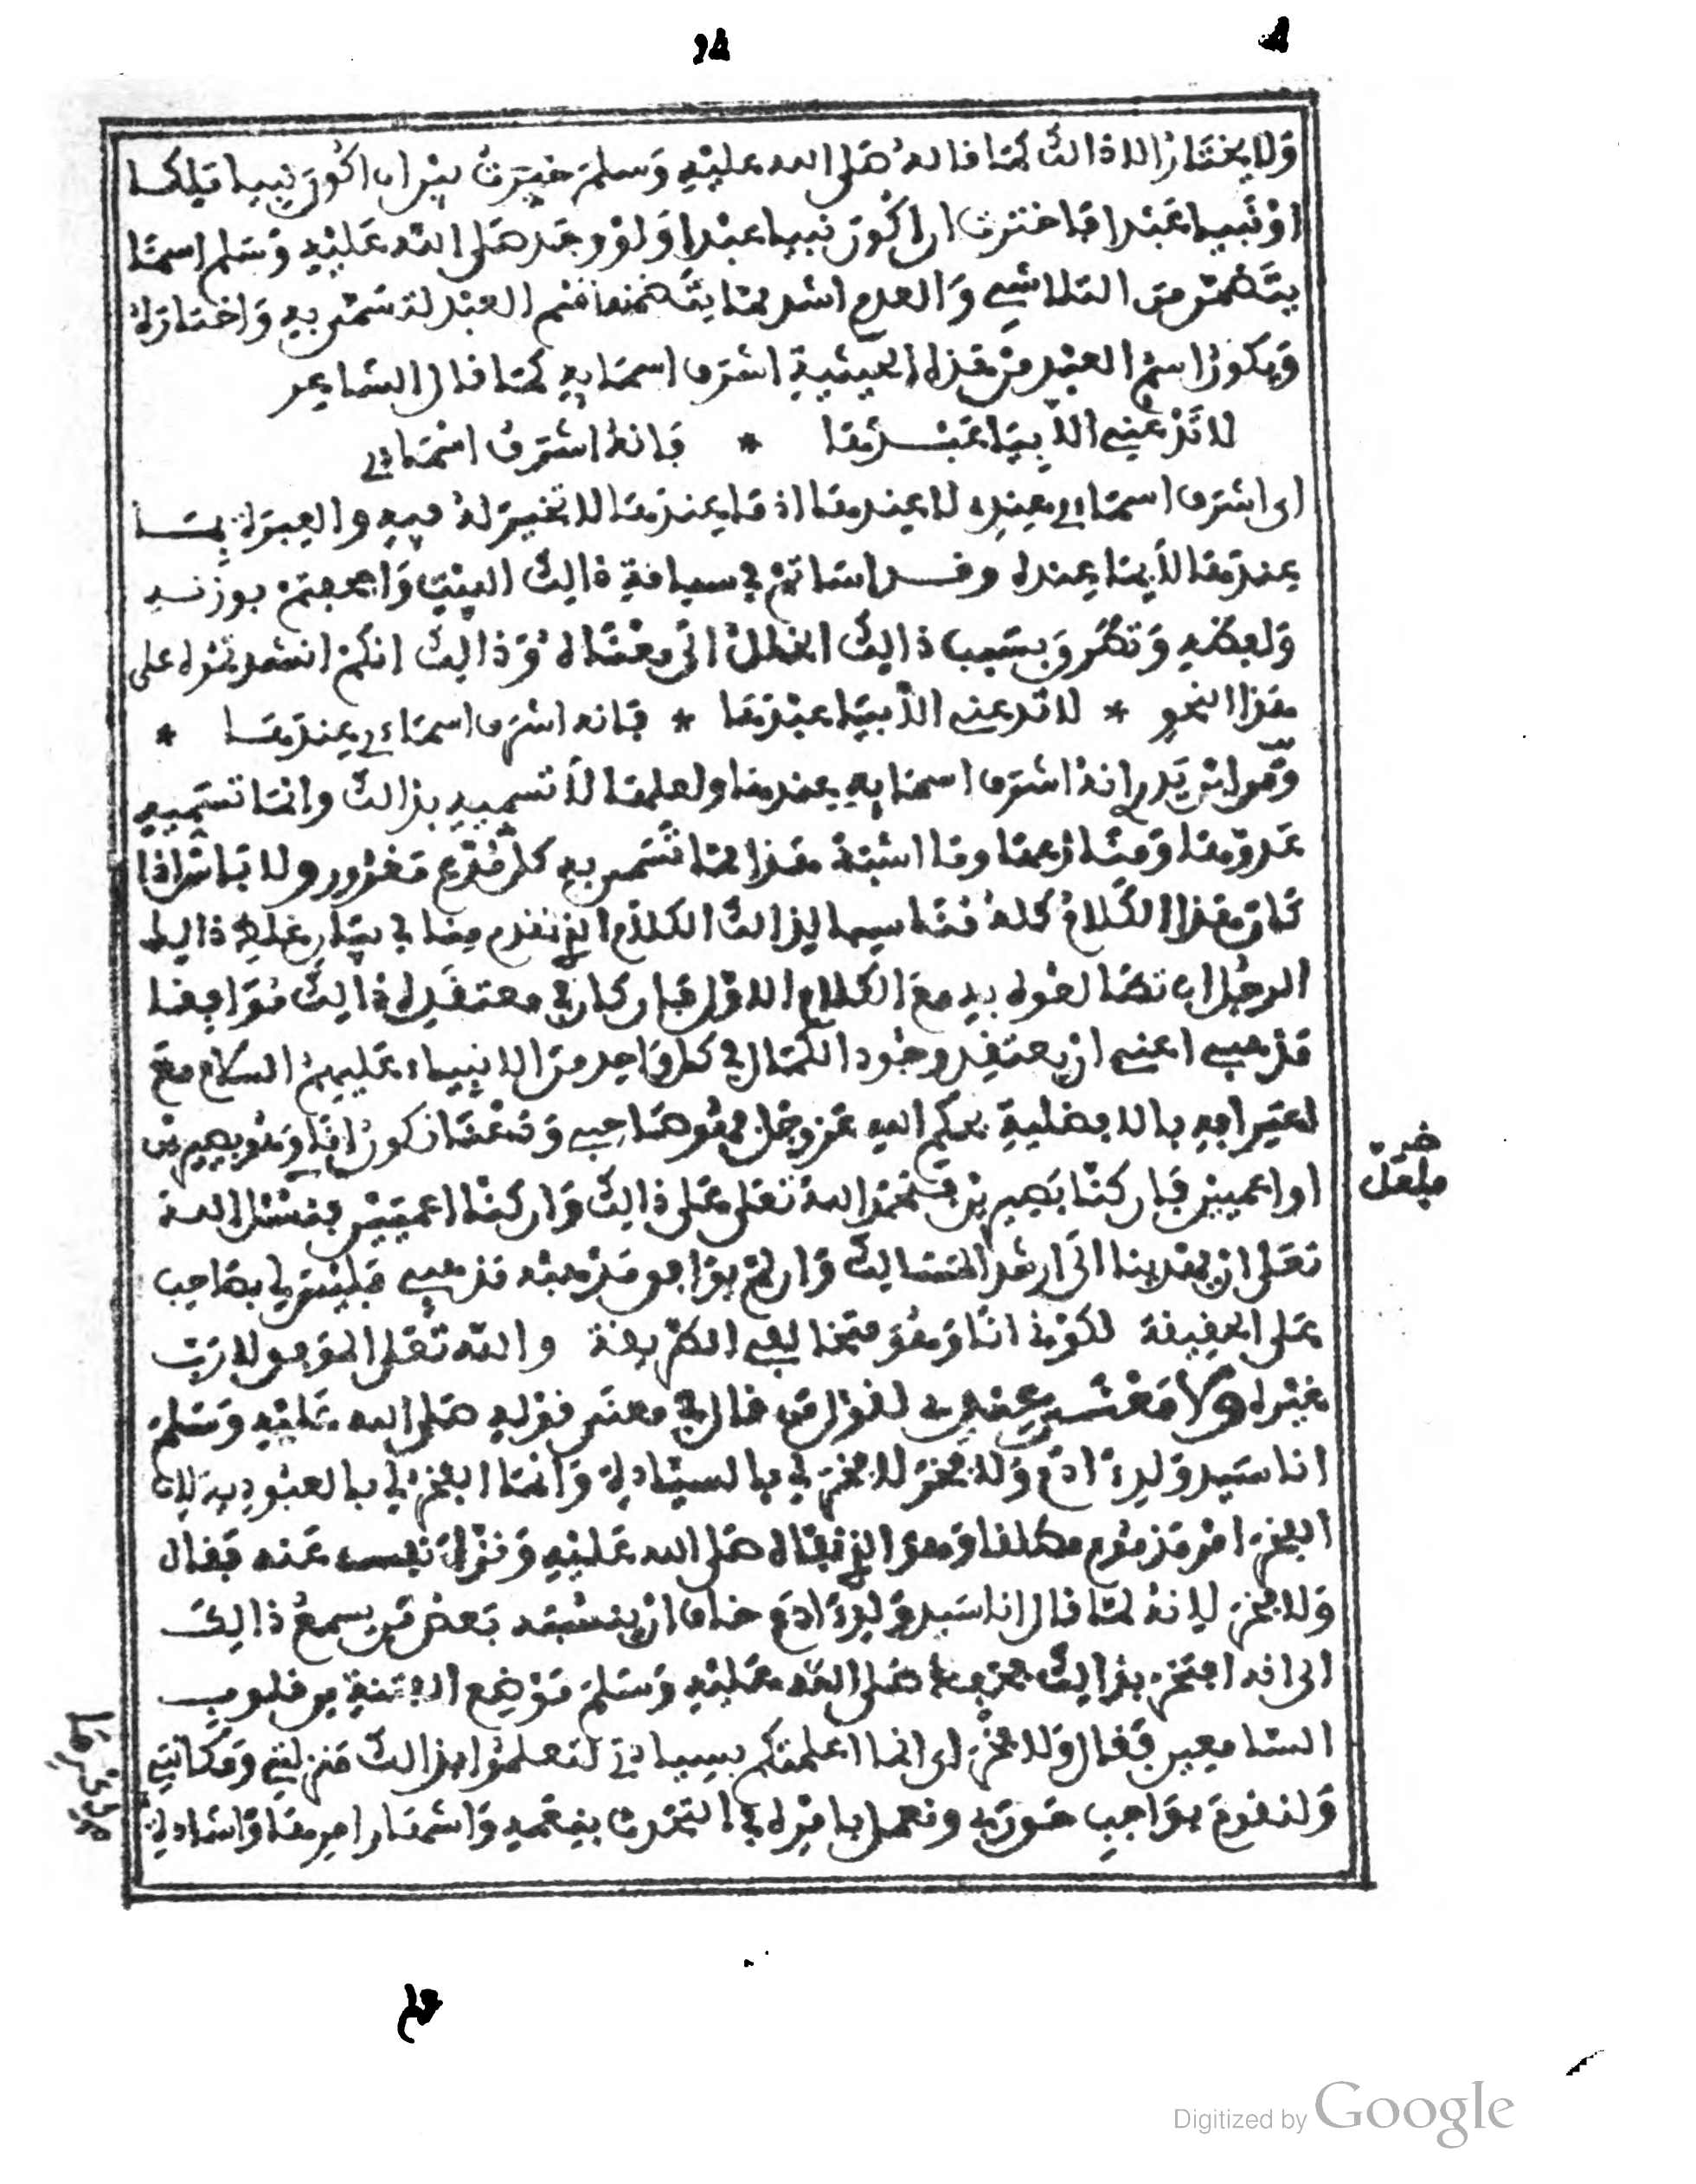 ولا يختار الا ذالك كما قاله صلى الله عليه وسلم خيرت بين ان اكون نبيا ملكا
او نبيا عبدا فاخترت ان اكون نبيا عبدا ولو وجد صلى الله عليه وسلم اسما
يتضمن من التلاشي والعدم اشد مما يتضمنه اسم العبد لتسمى به واختاره
ويكون اسم العبد من هذه الحيثية اشرف اسمايه كما قال الشاعر
لا تدعني الا بيا عبدها * فانه اشرف اسمائي
اي اشرف اسمائي عنده لا عندها اذ ما عندها لا تخبير له فيه والعبرة بما
عندها لا بما عنده وقد اساتم في سياقة ذالك البيت واجحفتم بوزنه
ولفظه وتطرق بسبب ذالك الخلل الى معناه وذالك انكم انشدتموه على
هذا النحو * لا تدعني الا بيا عبدها * فانه اشرف اسمائي عندها *
ومن اين يدري انه اشرف اسمايه عندها ولعلها لا تسميه بذالك وانما تسميه
عدوها ومنازعها وما اشبه هذا مما تسمى به كل مدع مغرور ولا باس اذا
كان هذا الكلام كله مناسبا لذالك الكلام الذي تقدم منا في بيان غلط ذالك
الرجل ان تضالعوه به مع الكلام الاول فان كان في معتقده ذالك موافقا
مذهبي اعني ان يعتقد وجود الكمال في كل واحد من الانبياء عليهم السلام مع
اعترافه بالافضلية بحكم الله عز وجل فهو صاحبي ومعنا نكون انا وهو بصيرين
او اعميين فان كنا بصيرين فنحمد الله تعلى على ذالك وان كنا اعميين فنسئل الله
تعلى ان يهدينا الى ارشد المسالك وان لم يوافق مذهبه مذهبي فليس لي بصاحب
على الحقيقة لكوني انا وهو متخالفي الطريقة والله تعلى الموفق لا رب
غيره ولا معنى عندي لقول من قال في معنى قوله صلى الله عليه وسلم
انا سيد ولد ءادم ولا فخر لا فخر لي بالسيادة وانما الفخر لي بالعبودية لان
الفخر امر مذموم مطلقا وهو الذي نفاه صلى الله عليه ونزه نفسه عنه فقال
ولا فخر لانه لما قال انا سيد ولد ءادم خاف ان ينسبه بعض من يسمع ذالك
الى انه افتخر بذالك صلى الله عليه وسلم موضع الفتنة من قلوب
السامعين فقال ولا فخر اي انما اعلمتكم بسيادتي لتعلموا بذالك منزلتي ومكانتي
ولنقوم بواجب حقوق ونعمل بامره في التحدث بنعمه واشتهار امرها واشادة
24
Digitized by Google